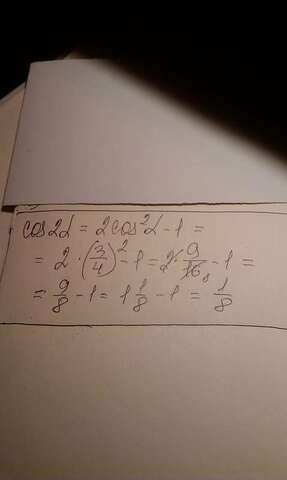 cos2α = 2cos²α - 1 =
= 2 · (3/4)² - 1 = 2 · 9/16 8 - 1 =
= 9/8 - 1 = 1 1/8 - 1 = 1/8